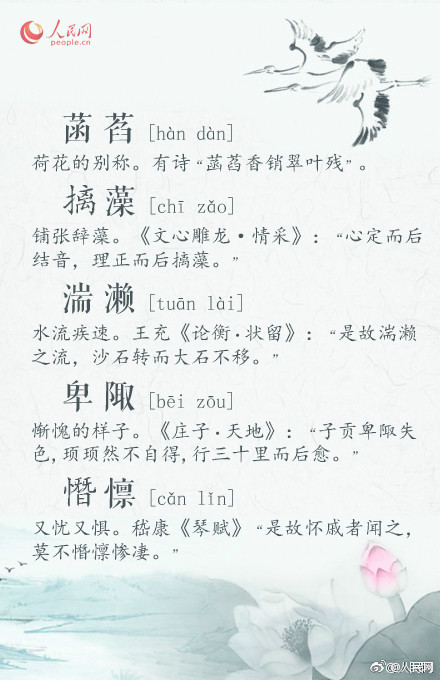 人民网
people.cn
菡萏 [hàn dàn]
荷花的别称。有诗“菡萏香销翠叶残”。
摛藻 [chī zǎo]
铺张辞藻。《文心雕龙·情采》：“心定而后
结音，理正而后摛藻。”
湍濑 [tuān lài]
水流疾速。王充《论衡·状留》：“是故湍濑
之流，沙石转而大石不移。”
卑陬 [bēi zōu]
惭愧的样子。《庄子·天地》：“子贡卑陬失
色,顼顼然不自得,行三十里而后愈。”
憯懔 [cǎn lǐn]
又忧又惧。嵇康《琴赋》“是故怀戚者闻之，
莫不憯懔惨凄。”
@人民网